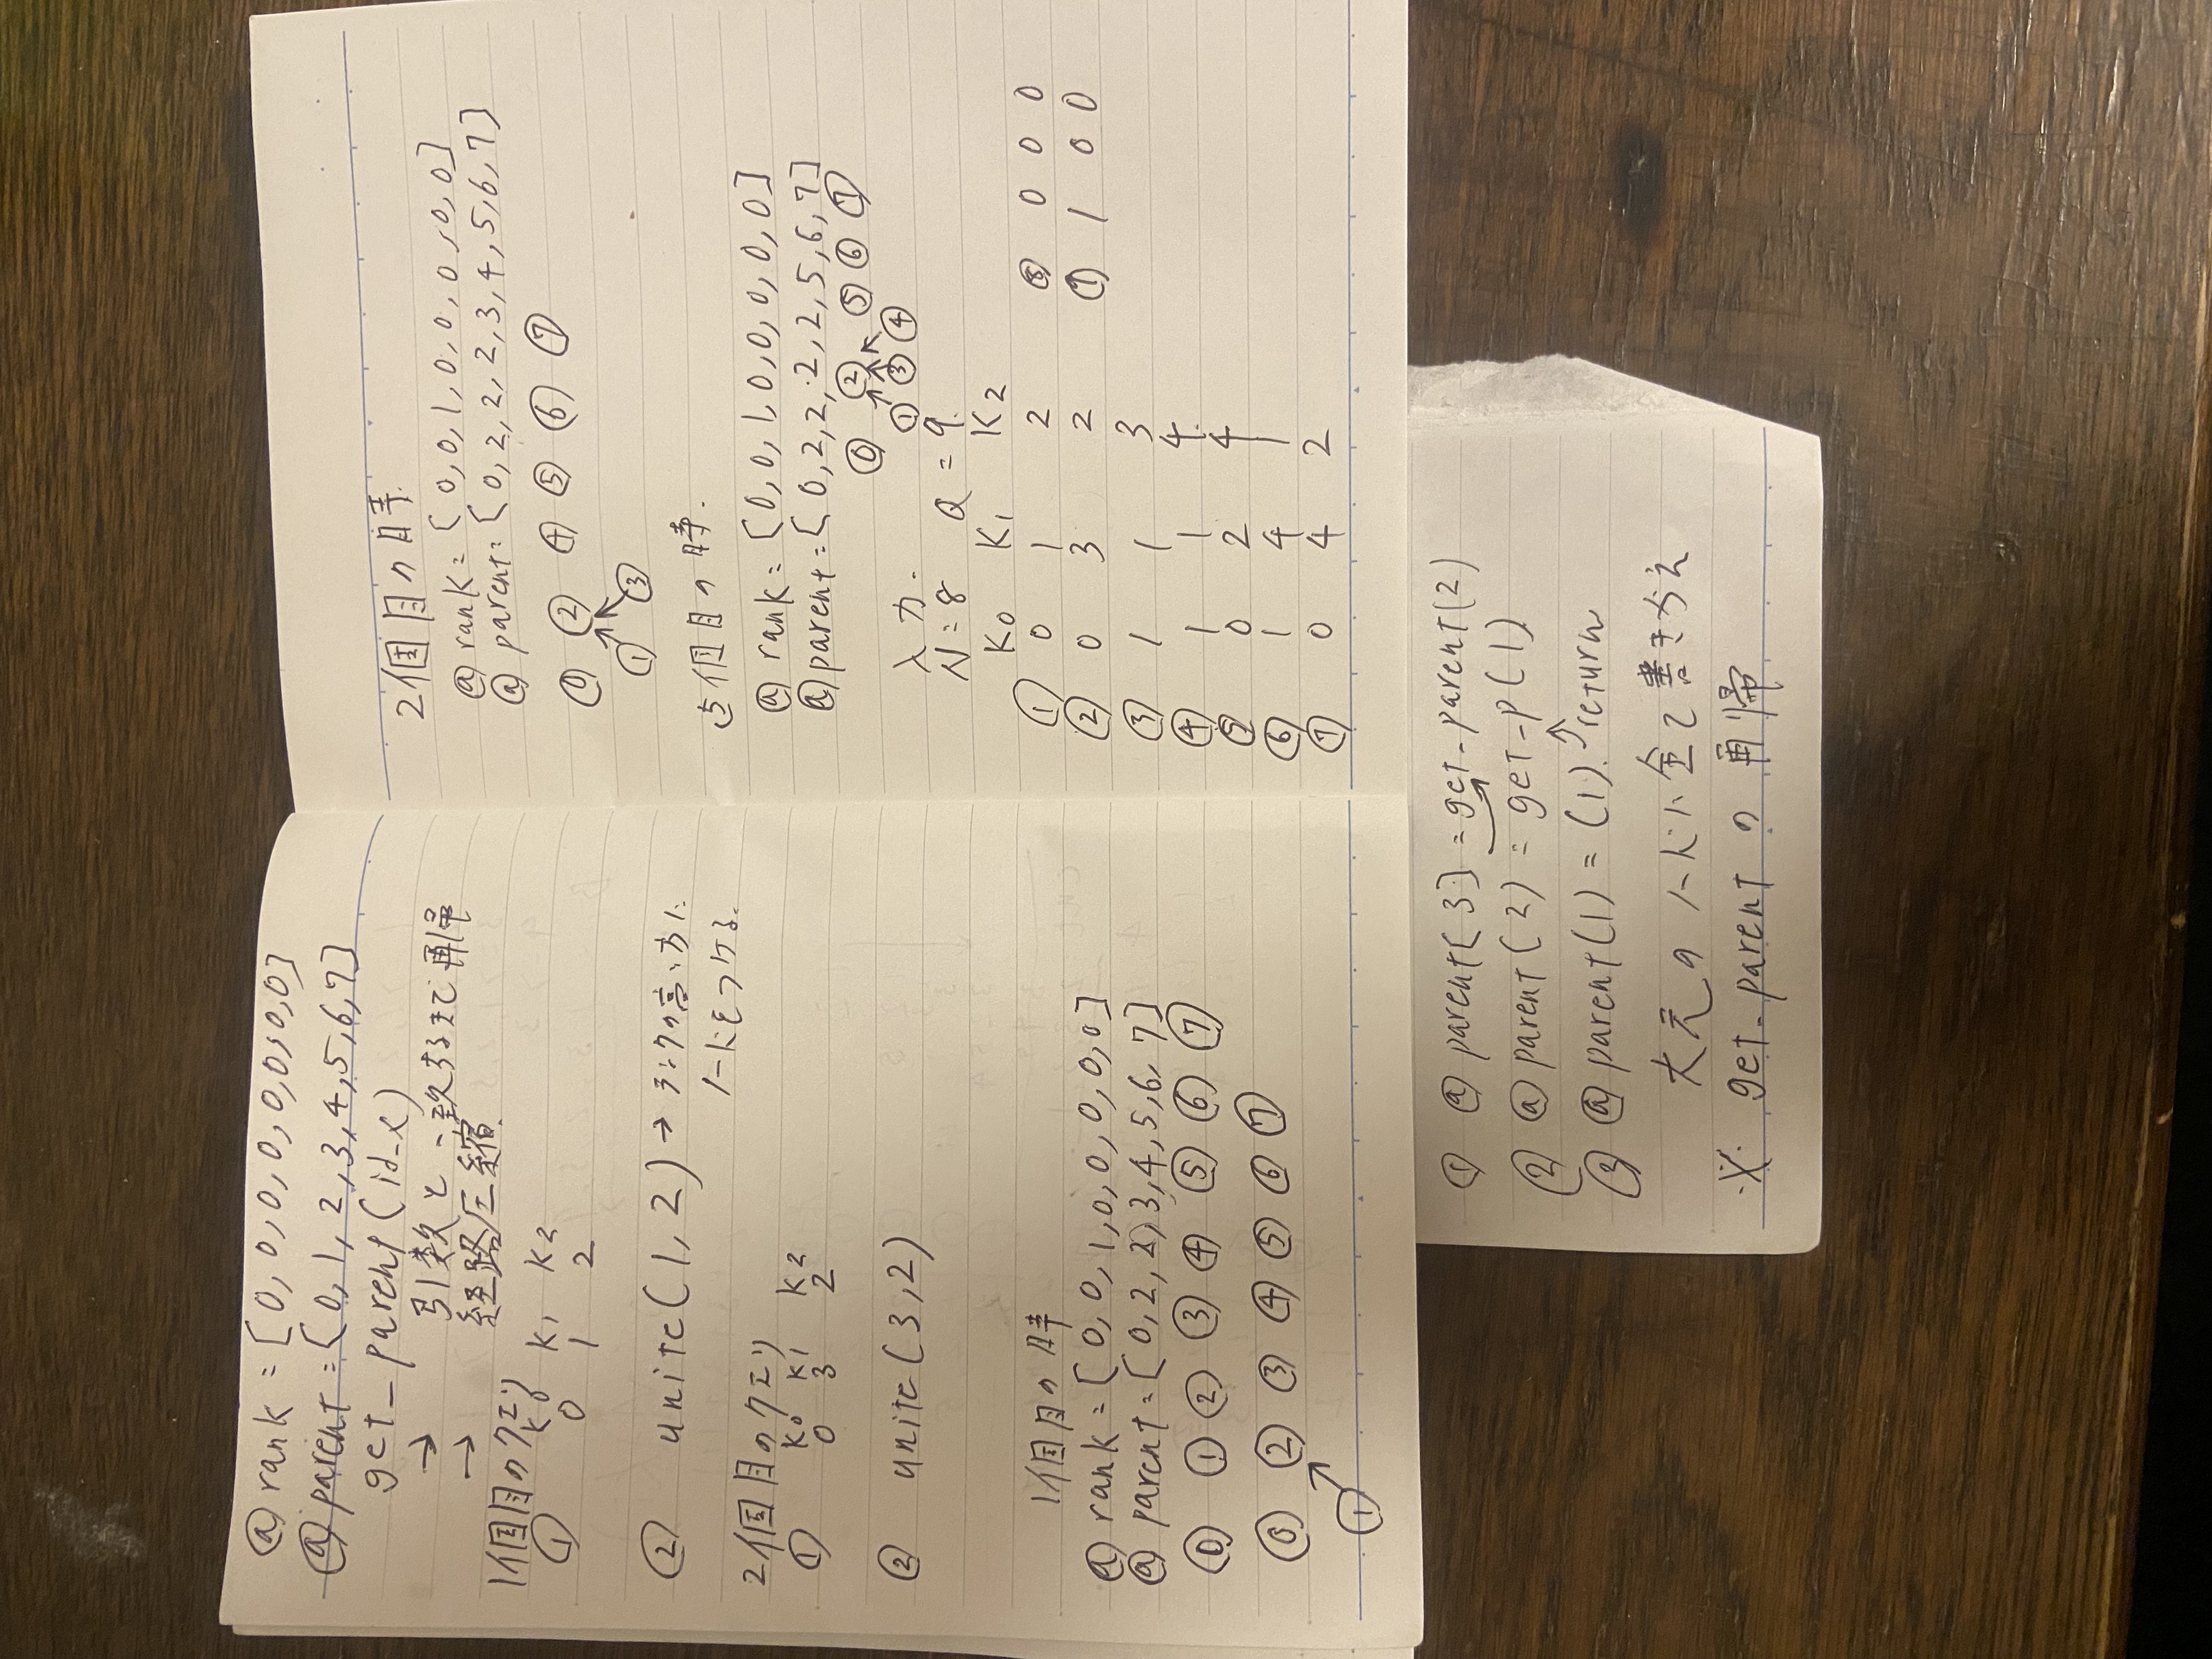 @rank = [0,0,0,0,0,0,0,0]
@parent = [0,1,2,3,4,5,6,7]
get_parent(id_x)
→ 引数と一致するまで再帰
→ 経路圧縮
1個目のクエリ
① K0 K1 K2
0 1 2
② unite(1,2) → ランクの高い方に
ノードをつける.
2個目のクエリ
K0 K1 K2
① 0 3 2
② unite(3,2)
1個目の時
@rank = [0,0,1,0,0,0,0,0]
@parent = [0,2,2,3,4,5,6,7]
⓪ ① ② ③ ④ ⑤ ⑥ ⑦
⓪ ② ③ ④ ⑤ ⑥ ⑦
①
2個目の時
@rank = [0,0,1,0,0,0,0,0]
@parent = [0,2,2,2,3,4,5,6,7]
⓪ ② ④ ⑤ ⑥ ⑦
① ③
5個目の時.
@rank = [0,0,1,0,0,0,0,0]
@parent = [0,2,2,2,2,5,6,7]
⓪ ② ⑤ ⑥ ⑦
① ③ ④
入力.
N=8 Q=9.
K0 K1 K2
① 0 1 2 ⑧ 0 0 0
② 0 3 2 ⑨ 1 0 0
③ 1 1 3
④ 1 1 4
⑤ 0 2 4
⑥ 1 4 1
⑦ 0 4 2
① @parent[3] = get_parent(2)
② @parent(2) = get_p(1)
③ @parent(1) = (1). return
大元のノードに全て書きかえ
※ get_parent の再帰